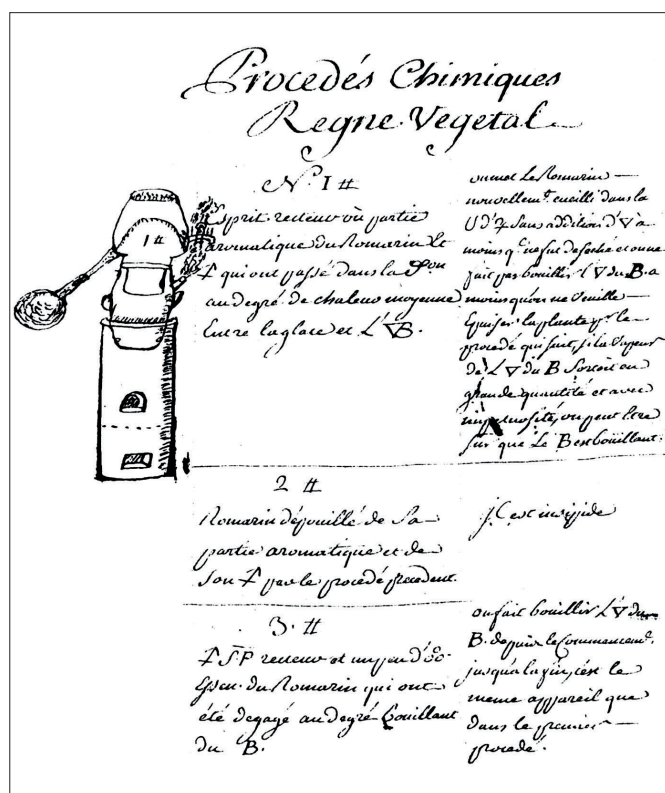 Procedés Chimiques
Regne Vegetal
N.º 1 #
1 #
Esprit recteur où partie
aromatique du Romarin et
qui ont passé dans la
au degré de chaleur moyenne
Entre la glace et L'🜄B.
on met Le Romarin —
nouvellem.t cueilli dans la
sans addition d'🜄 a
moins q. ne fut desseché et on ne
fait pas bouillir L'🜄 du B. a
moins qu'on ne veuille —
Epuiser la plante p.r le
procedé qui suit, si la vapeur
de L'🜄 du B sortoit en
grande quantité et avec
impetuosité, on peut être
sur que Le B est bouillant.
2 #
Romarin dépouillé de Sa —
partie aromatique et de
Son par le procedé precedent.
jl est insipide
3. #
recteur et un peu d'
Essen. du Romarin qui ont
été degagé au degré Bouillant
du B.
on fait bouillir L'🜄 du
B. depuis le Commencem.t
jusqu'à la fin, c'est le
meme appareil que
dans le premier —
procedé.